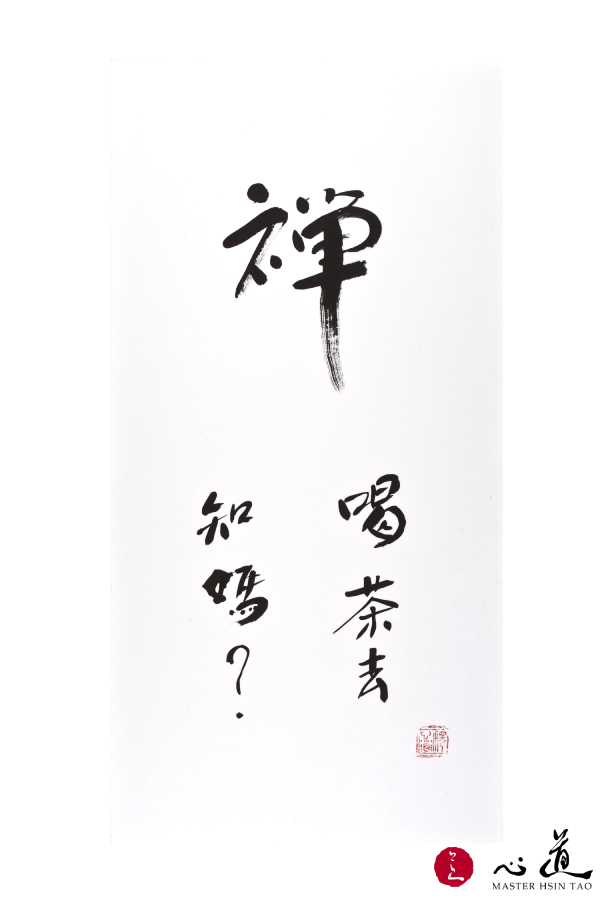 禅
喝茶去
知媽?
心道
MASTER HSIN TAO